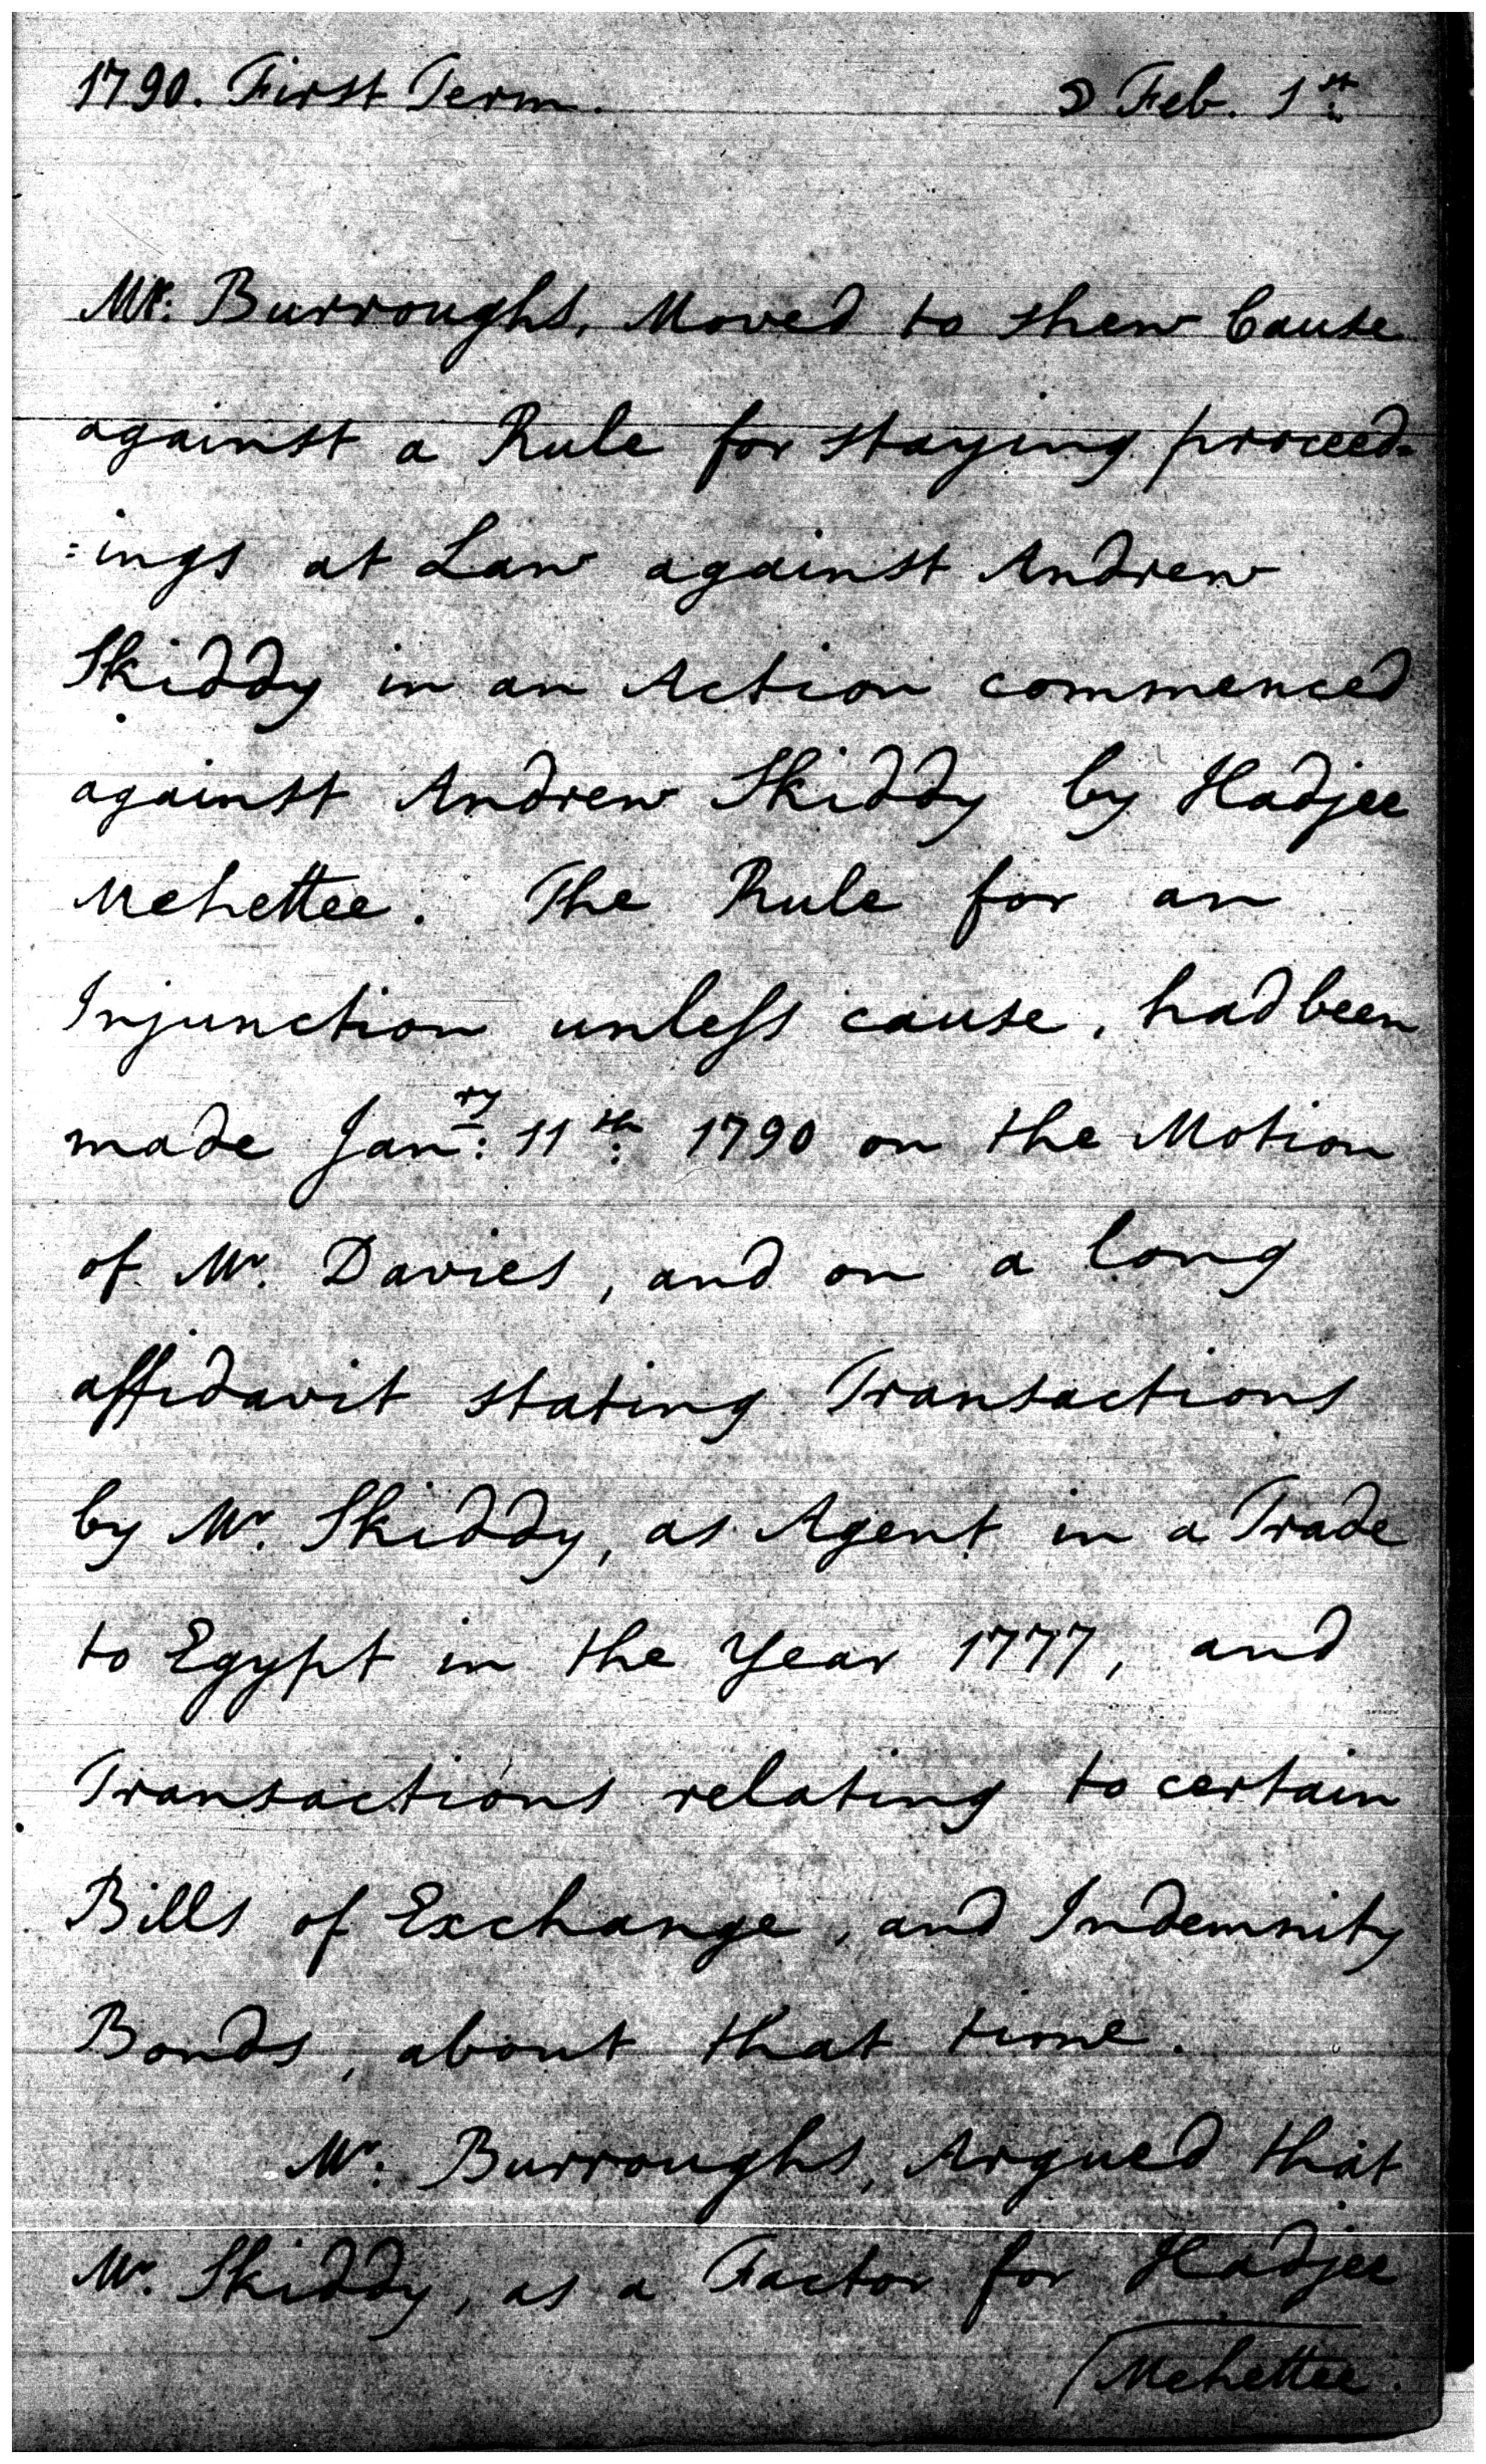 1790. First Term. ☽ Feb. 1st.
Mr. Burroughs, Moved to shew Cause
against a Rule for staying proceed=
=ings at Law against Andrew
Skiddy in an Action commenced
against Andrew Skiddy by Hadjee
Mehettee. The Rule for an
Injunction unless cause, had been
made Janry: 11th: 1790 on the Motion
of Mr. Davies, and on a long
affidavit stating Transactions
by Mr. Skiddy, as Agent in a Trade
to Egypt in the Year 1777, and
Transactions relating to certain
Bills of Exchange, and Indemnity
Bonds, about that time.
Mr. Burroughs, Argued that
Mr. Skiddy, as a Factor for Hadjee
Mehettee.